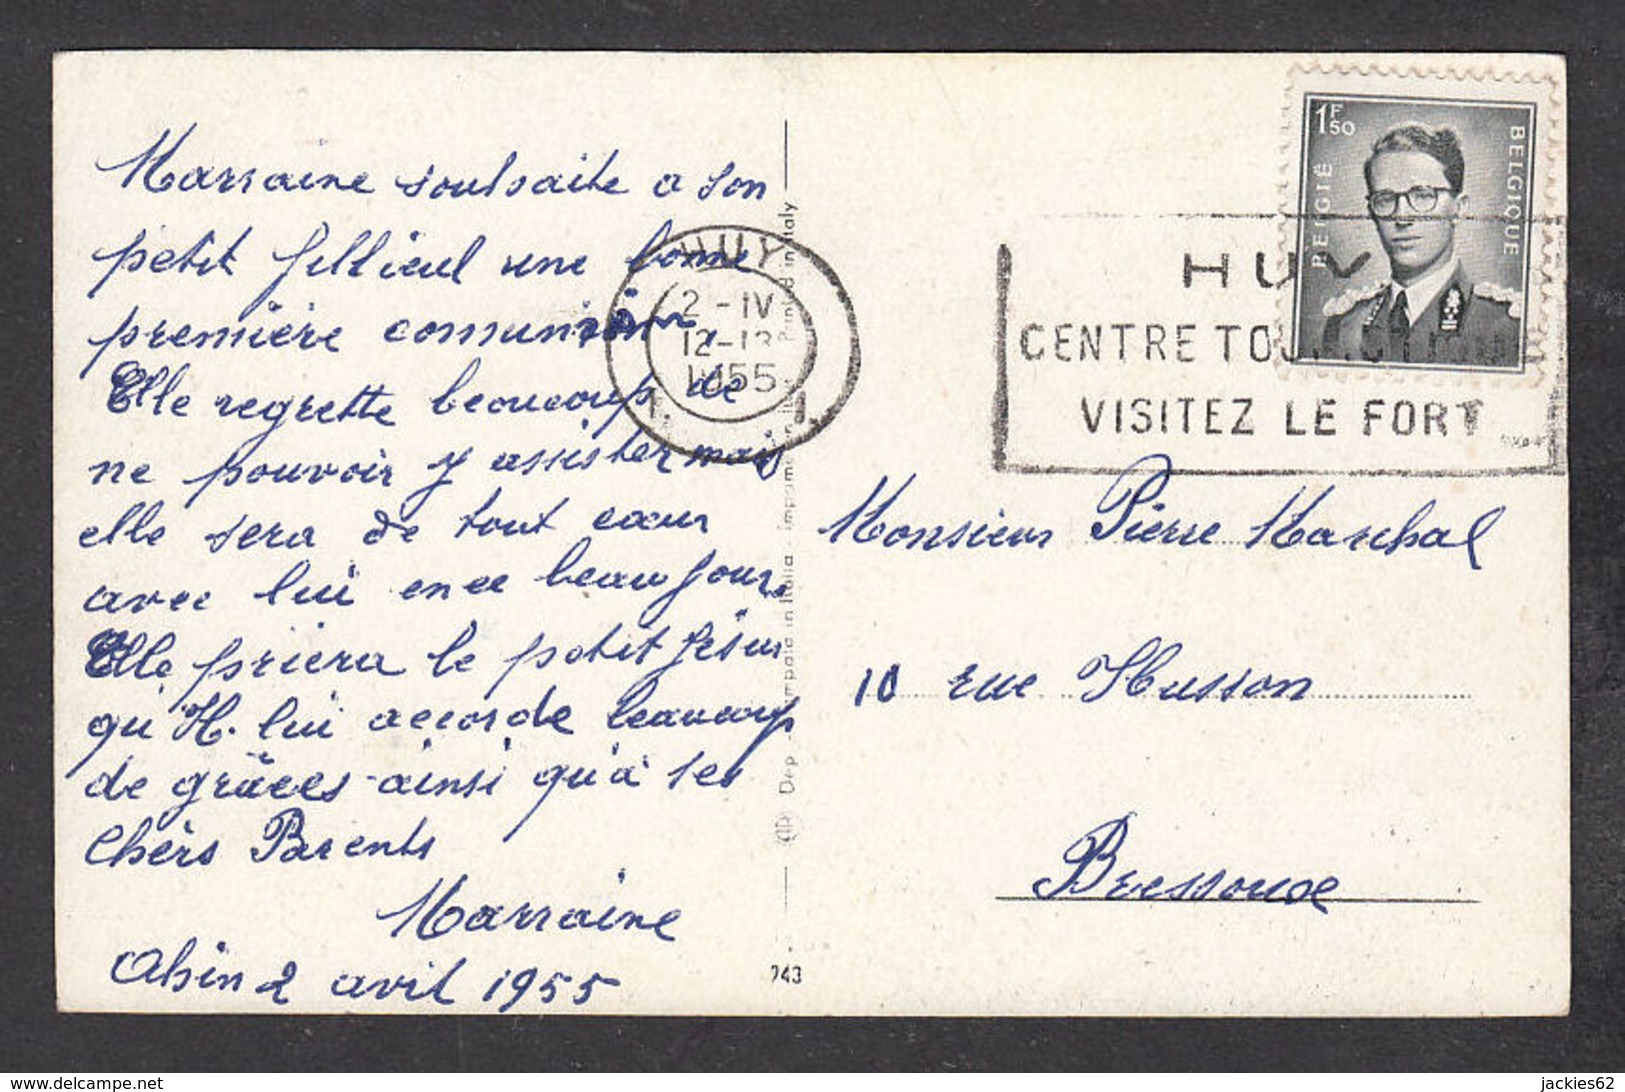 Marraine souhaite a son
petit fillieul une bonne
première comunion,
Elle regrette beaucoup de
ne pouvoir y assister mais
elle sera de tout coeur
avec lui en ce beau jour.
Elle priera le petit Jésus
qu'Il lui accorde beaucoup
de grâces ainsi qu'à ses
Chèrs Parents
Marraine
Ahin 2 avril 1955
HUY
2-IV
12-13
1955
1F50
BELGIË
BELGIQUE
HUY
CENTRE TOURISTIQUE
VISITEZ LE FORT
Monsieur Pierre Marschal
10 rue Husson
Bressoux
Printed in Italy
Imprimé
Dep.
Stampato in Italia
243
jackies62